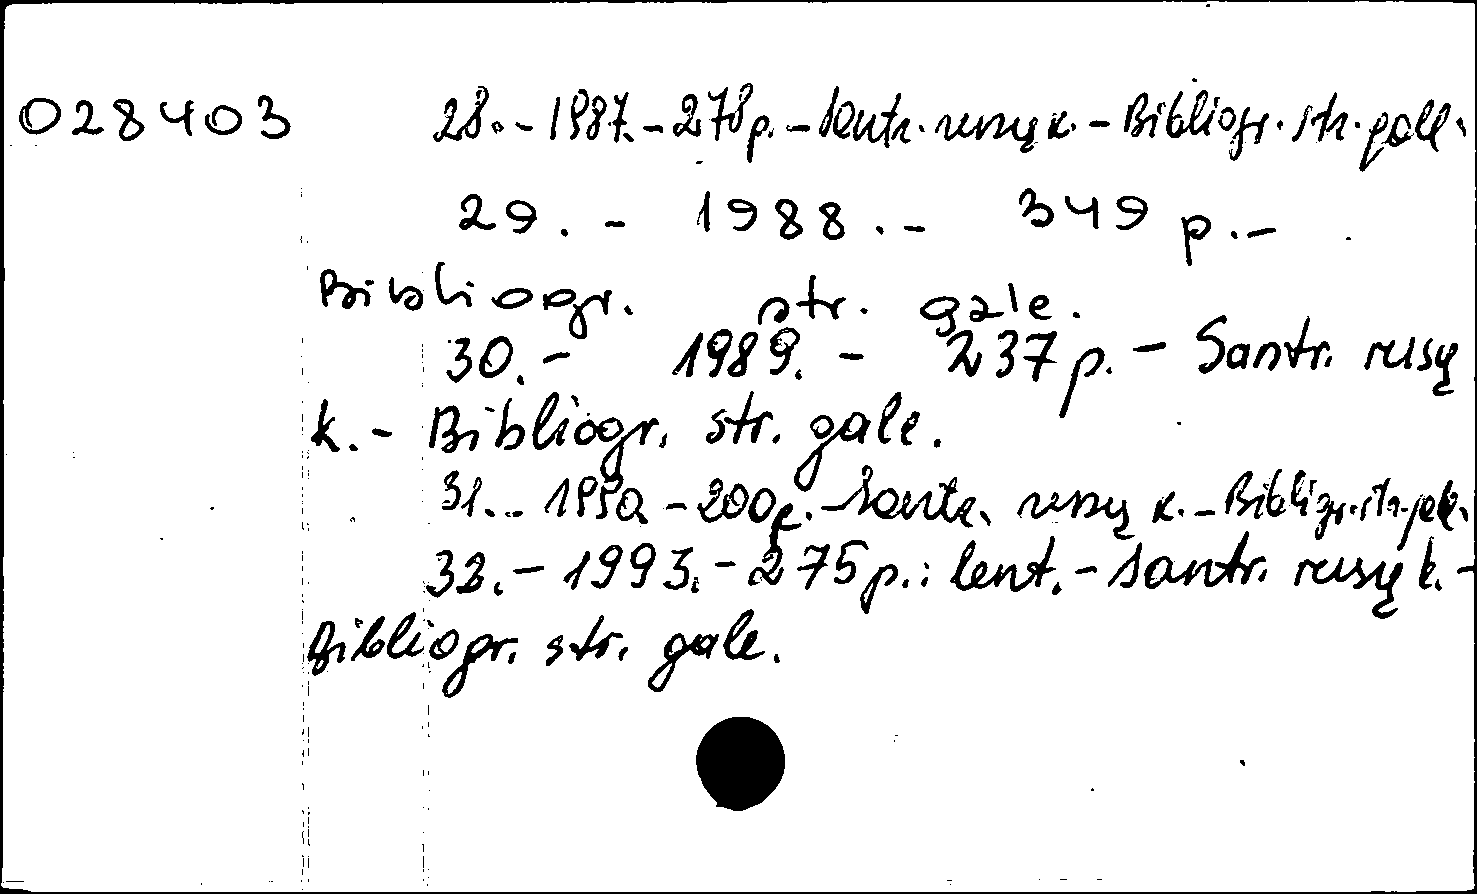 028403 28. - 1987. - 278 p. - Santr. rusų k. - Bibliogr. str. gale.
29. - 1988. - 349 p. -
Bibliogr. str. gale.
30. - 1989. - 237 p. - Santr. rusų
k. - Bibliogr. str. gale.
31. - 1990 - 200 p. - Santr. rusų k. - Bibliogr. str. gale.
32. - 1993. - 275 p.: lent. - Santr. rusų k. -
Bibliogr. str. gale.